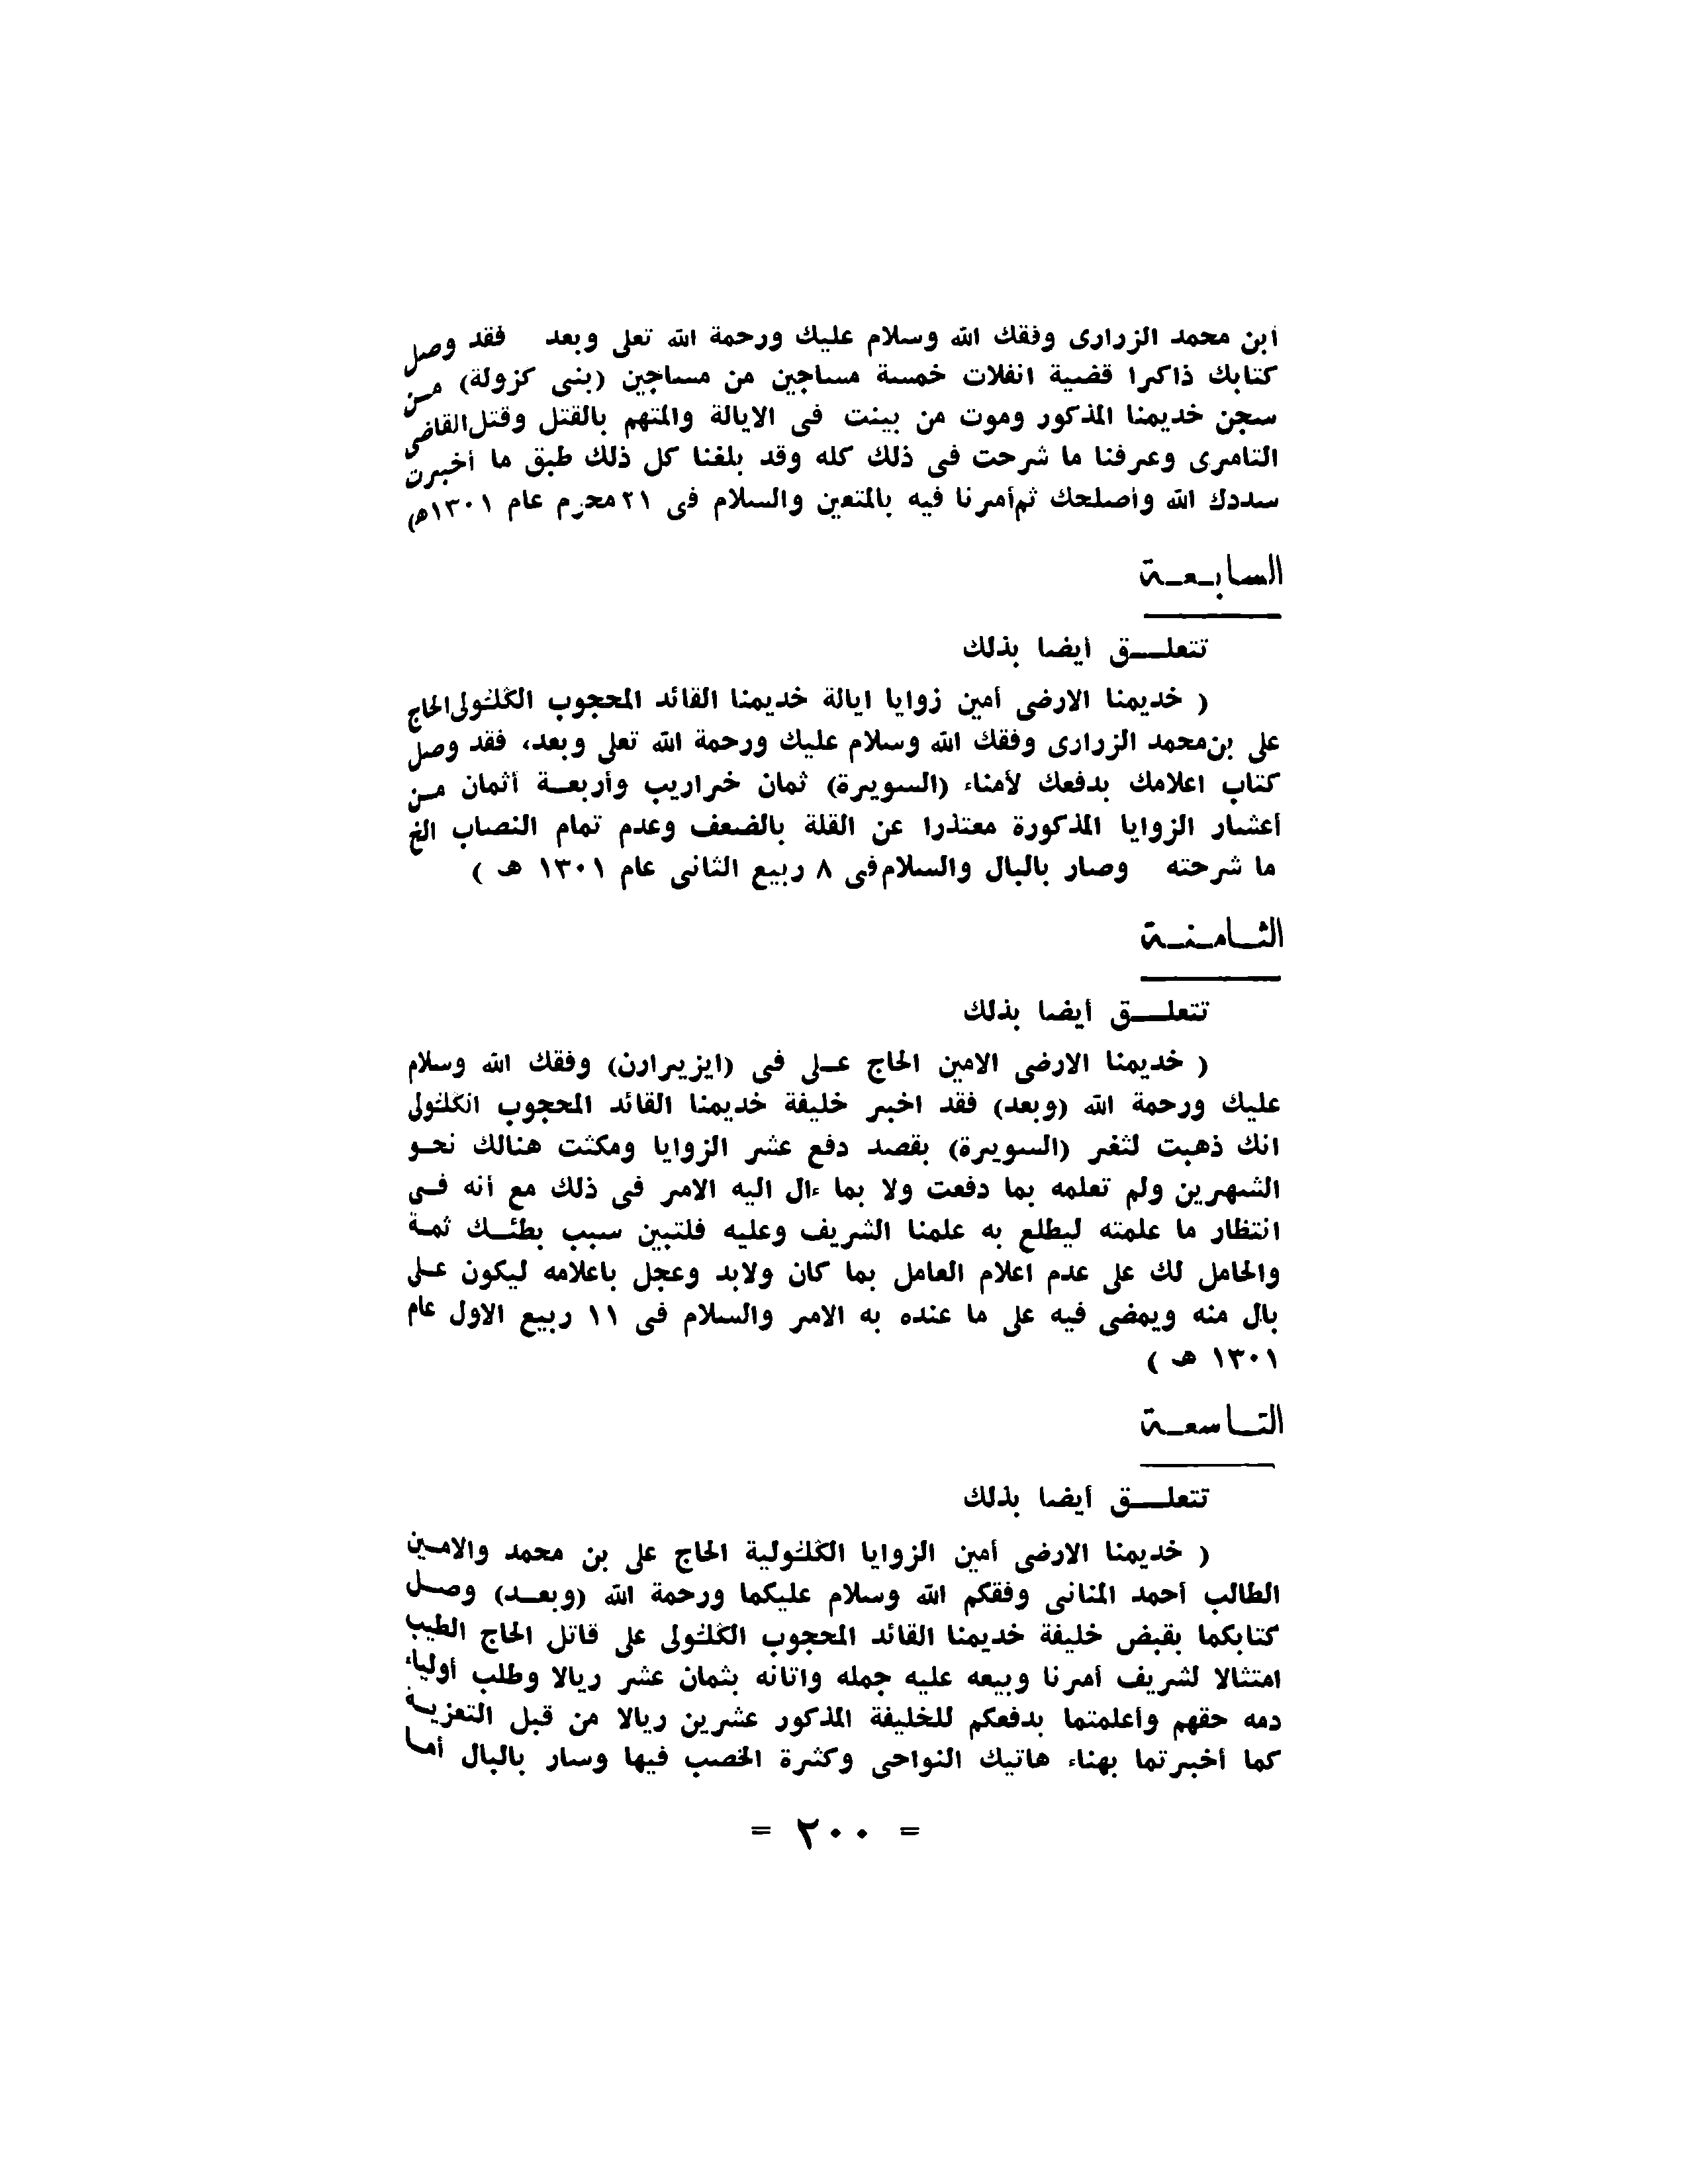 ابن محمد الزرارى وفقك الله وسلام عليك ورحمة الله تعلى وبعد فقد وصل
كتابك ذاكرا قضية انفلات خمسة مساجين من مساجين (بنى كزولة) مـن
سجن خديمنا المذكور وموت من بينت فى الايالة والمتهم بالقتل وقتل القاضى
التامرى وعرفنا ما شرحت فى ذلك كله وقد بلغنا كل ذلك طبق ما أخبرت
سددك الله وأصلحك ثم أمرنا فيه بالمتعين والسلام فى ٢١ محرم عام ١٣٠١هـ)
السابـعـة
تتعلـــق أيضا بذلك
( خديمنا الارضى أمين زوايا ايالة خديمنا القائد المحجوب الگلولى الحاج
على بن محمد الزرارى وفقك الله وسلام عليك ورحمة الله تعلى وبعد، فقد وصل
كتاب اعلامك بدفعك لأمناء (السويرة) ثمان خراريب وأربعـة أثمان مـن
أعشار الزوايا المذكورة معتذرا عن القلة بالضعف وعدم تمام النصاب الخ
ما شرحته وصار بالبال والسلام فى ٨ ربيع الثانى عام ١٣٠١ هـ )
الثـامـنـة
تتعلـــق أيضا بذلك
( خديمنا الارضى الامين الحاج عـلى فى (ايزيرارن) وفقك الله وسلام
عليك ورحمة الله (وبعد) فقد اخبر خليفة خديمنا القائد المحجوب انگلولى
انك ذهبت لثغر (السويرة) بقصد دفع عشر الزوايا ومكثت هنالك نحـو
الشهرين ولم تعلمه بما دفعت ولا بما ءال اليه الامر فى ذلك مع أنه فـى
انتظار ما علمته ليطلع به علمنا الشريف وعليه فلتبين سبب بطئـك ثمـة
والحامل لك على عدم اعلام العامل بما كان ولابد وعجل باعلامه ليكون عـلى
بال منه ويمضى فيه على ما عنده به الامر والسلام فى ١١ ربيع الاول عام
١٣٠١ هـ )
التـاسعـة
تتعلـــق أيضا بذلك
( خديمنا الارضى أمين الزوايا الگلولية الحاج على بن محمد والامـين
الطالب أحمد المنانى وفقكم الله وسلام عليكما ورحمة الله (وبعـد) وصـل
كتابكما بقبض خليفة خديمنا القائد المحجوب الگلولى على قاتل الحاج الطيب
امتثالا لشريف أمرنا وبيعه عليه جمله واتانه بثمان عشر ريالا وطلب أولياء
دمه حقهم وأعلمتما بدفعكم للخليفة المذكور عشرين ريالا من قبل التعزيـة
كما أخبرتما بهناء هاتيك النواحى وكثرة الخصب فيها وسار بالبال أمـا
= ٢٠٠ =